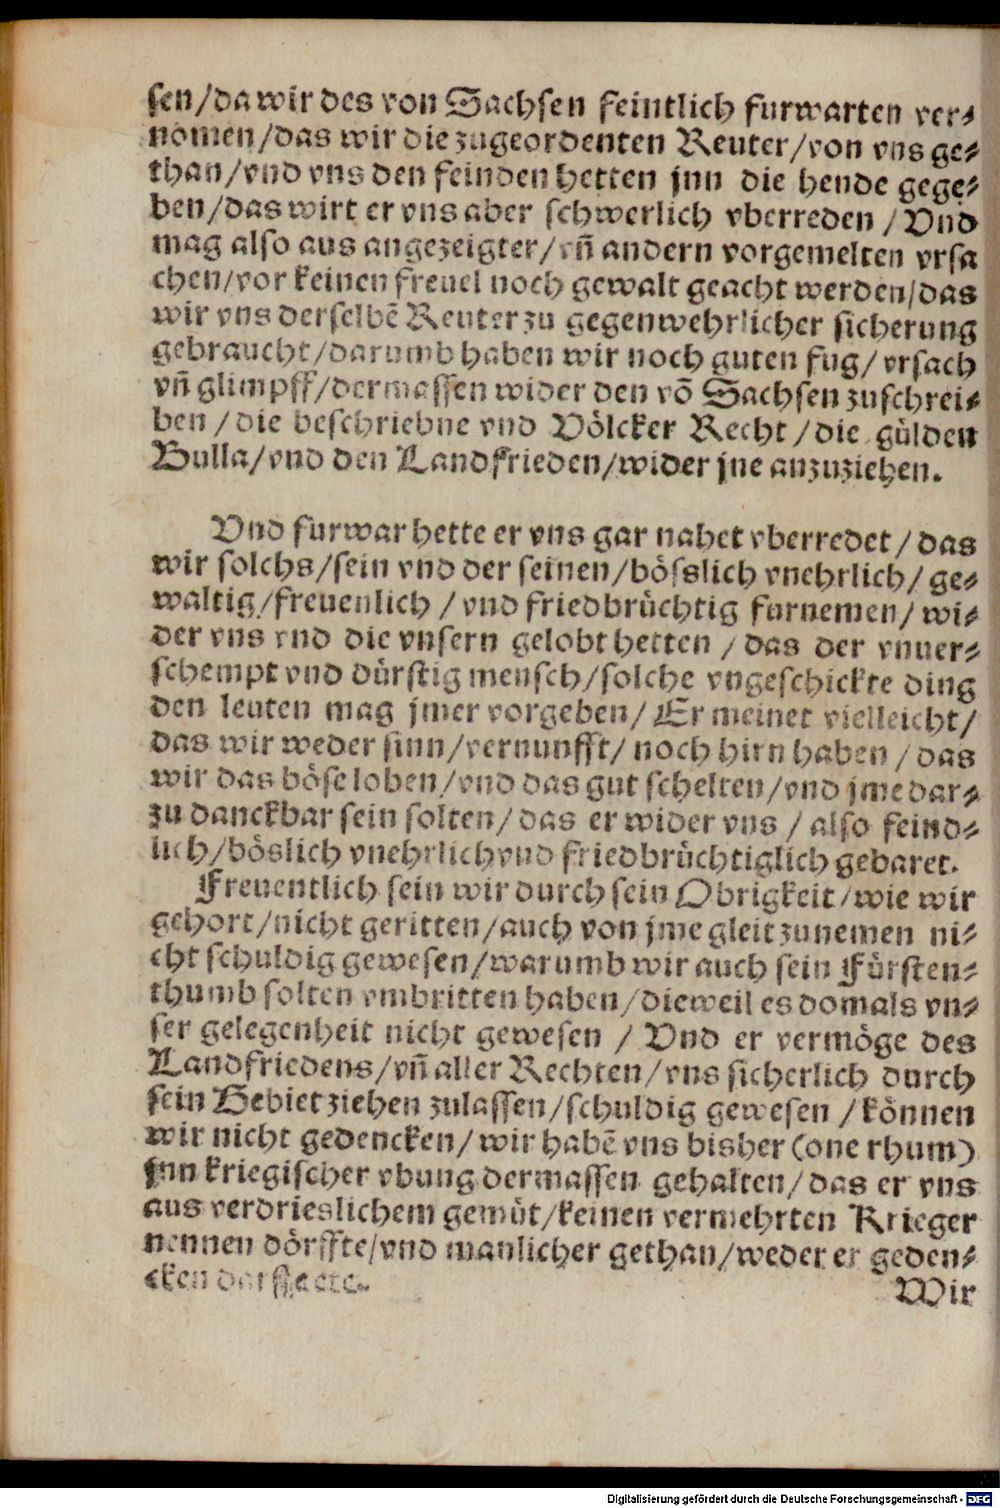 sen/da wir des von Sachsen feintlich furwarten ver⸗
nomen/das wir die zugeordenten Reuter/von vns ge⸗
than/vnd vns den feinden hetten jnn die hende gege⸗
ben/das wirt er vns aber schwerlich vberreden /Vnd
mag also aus angezeigter/vñ andern vorgemelten vrsa
chen/vor keinen freuel noch gewalt geacht werden/das
wir vns derselbẽ Reuter zu gegenwehrlicher sicherung
gebraucht/darumb haben wir noch guten fug/vrsach
vñ glimpff/dermassen wider den võ Sachsen zuschrei⸗
ben /die beschriebne vnd Völcker Recht /die gülden
Bulla/vnd den Landfrieden/wider jne anzuziehen.
Vnd furwar hette er vns gar nahet vberredet/das
wir solchs/sein vnd der seinen/bösslich vnehrlich/ge⸗
waltig/freuenlich /vnd friedbrüchtig furnemen/wi⸗
der vns vnd die vnsern gelobt hetten /das der vnuer⸗
schempt vnd dürstig mensch/solche vngeschickte ding
den leuten mag jmer vorgeben/Er meinet vielleicht/
das wir weder sinn/vernunfft/noch hirn haben /das
wir das böse loben/vnd das gut schelten/vnd jme dar⸗
zu danckbar sein solten/das er wider vns /also feind⸗
lich/böslich vnehrlich vnd friedbrüchtiglich gebaret.
Freuentlich sein wir durch sein Obrigkeit/wie wir
gehort/nicht geritten/auch von jme gleit zunemen ni⸗
cht schuldig gewesen/warumb wir auch sein Fürsten⸗
thumb solten vmbritten haben/dieweil es domals vn⸗
ser gelegenheit nicht gewesen /Vnd er vermöge des
Landfriedens/vñ aller Rechten/vns sicherlich durch
sein Gebiet ziehen zulassen/schuldig gewesen /können
wir nicht gedencken/wir habẽ vns bisher (one rhum)
jnn kriegischer vbung dermassen gehalten/das er vns
aus verdrieslichem gemüt/keinen vermehrten Krieger
nennen dörffte/vnd manlicher gethan/weder er geden⸗
cken darff etc.
Wir
Digitalisierung gefördert durch die Deutsche Forschungsgemeinschaft - DFG